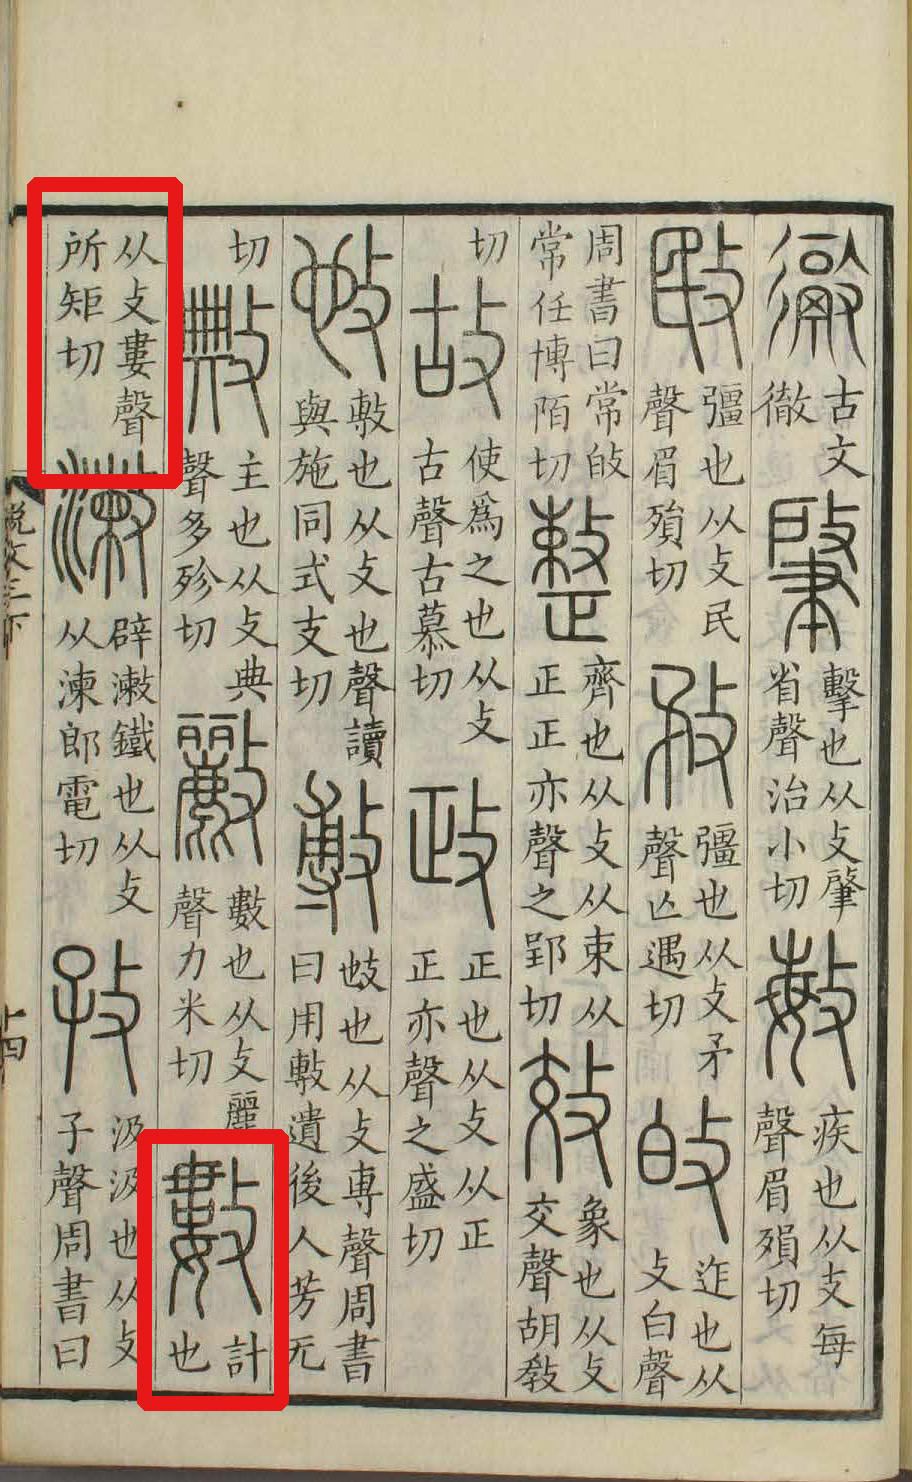 徹古文徹肇擊也从攴肈省聲治小切敏疾也从攴每聲眉殞切
敃彊也从攴民聲眉殞切敄彊也从攴矛聲亡遇切敀迮也从攴白聲
周書曰常敀常任博陌切整齊也从攴从束从正正亦聲之郢切效象也从攴交聲胡敎
切故使爲之也从攴古聲古慕切政正也从攴从正正亦聲之盛切
𢻱敷也从攴也聲讀與施同式支切敷𢻱也从攴尃聲周書曰用敷遺後人芳无
切敟主也从攴典聲多殄切𢿨數也从攴麗聲力米切數計也
从攴婁聲所矩切㵽辟漱鐵也从攴从湅郎電切孜汲汲也从攴子聲周書曰
說文三下
十四